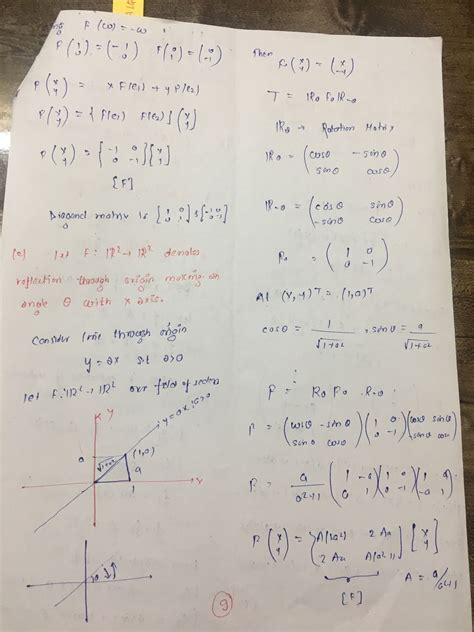 F(ω) = -ω
F(1 0) = (-1 0) F(0 1) = (0 -1)
P(x y) = x F(e1) + y F(e2)
P(x y) = { F(e1) F(e2) } (x y)
P(x y) = [-1 0 0 -1] [x y]
[F]
Diagonal matrix is
(c) let F: IR² → IR² denotes
reflection through origin making an
angle θ with x axis.
Consider line through origin
y = ax st a>0
let F: IR² → IR² our field of
Y
y = ax, a>0
a
(1,a)
√1+a²
a
x
1
θ
Then
F₀(x y) = (x -y)
T = IRθ F₀ IR-θ
IRθ → Rotation Matrix
IRθ = (cosθ -sinθ sinθ cosθ)
IR-θ = (cosθ sinθ -sinθ cosθ)
= (1 0 0 -1)
At (x, y)ᵀ = (1, a)ᵀ
cosθ = 1/√1+a², sinθ = a/√1+a²
F = Rθ F₀ R-θ
= (cosθ -sinθ sinθ cosθ) (1 0 0 -1) (cosθ sinθ -sinθ cosθ)
a/a²+1 (1 -a a 1) (1 0 0 -1) (1 a -a 1)
[x y]
[F]
9